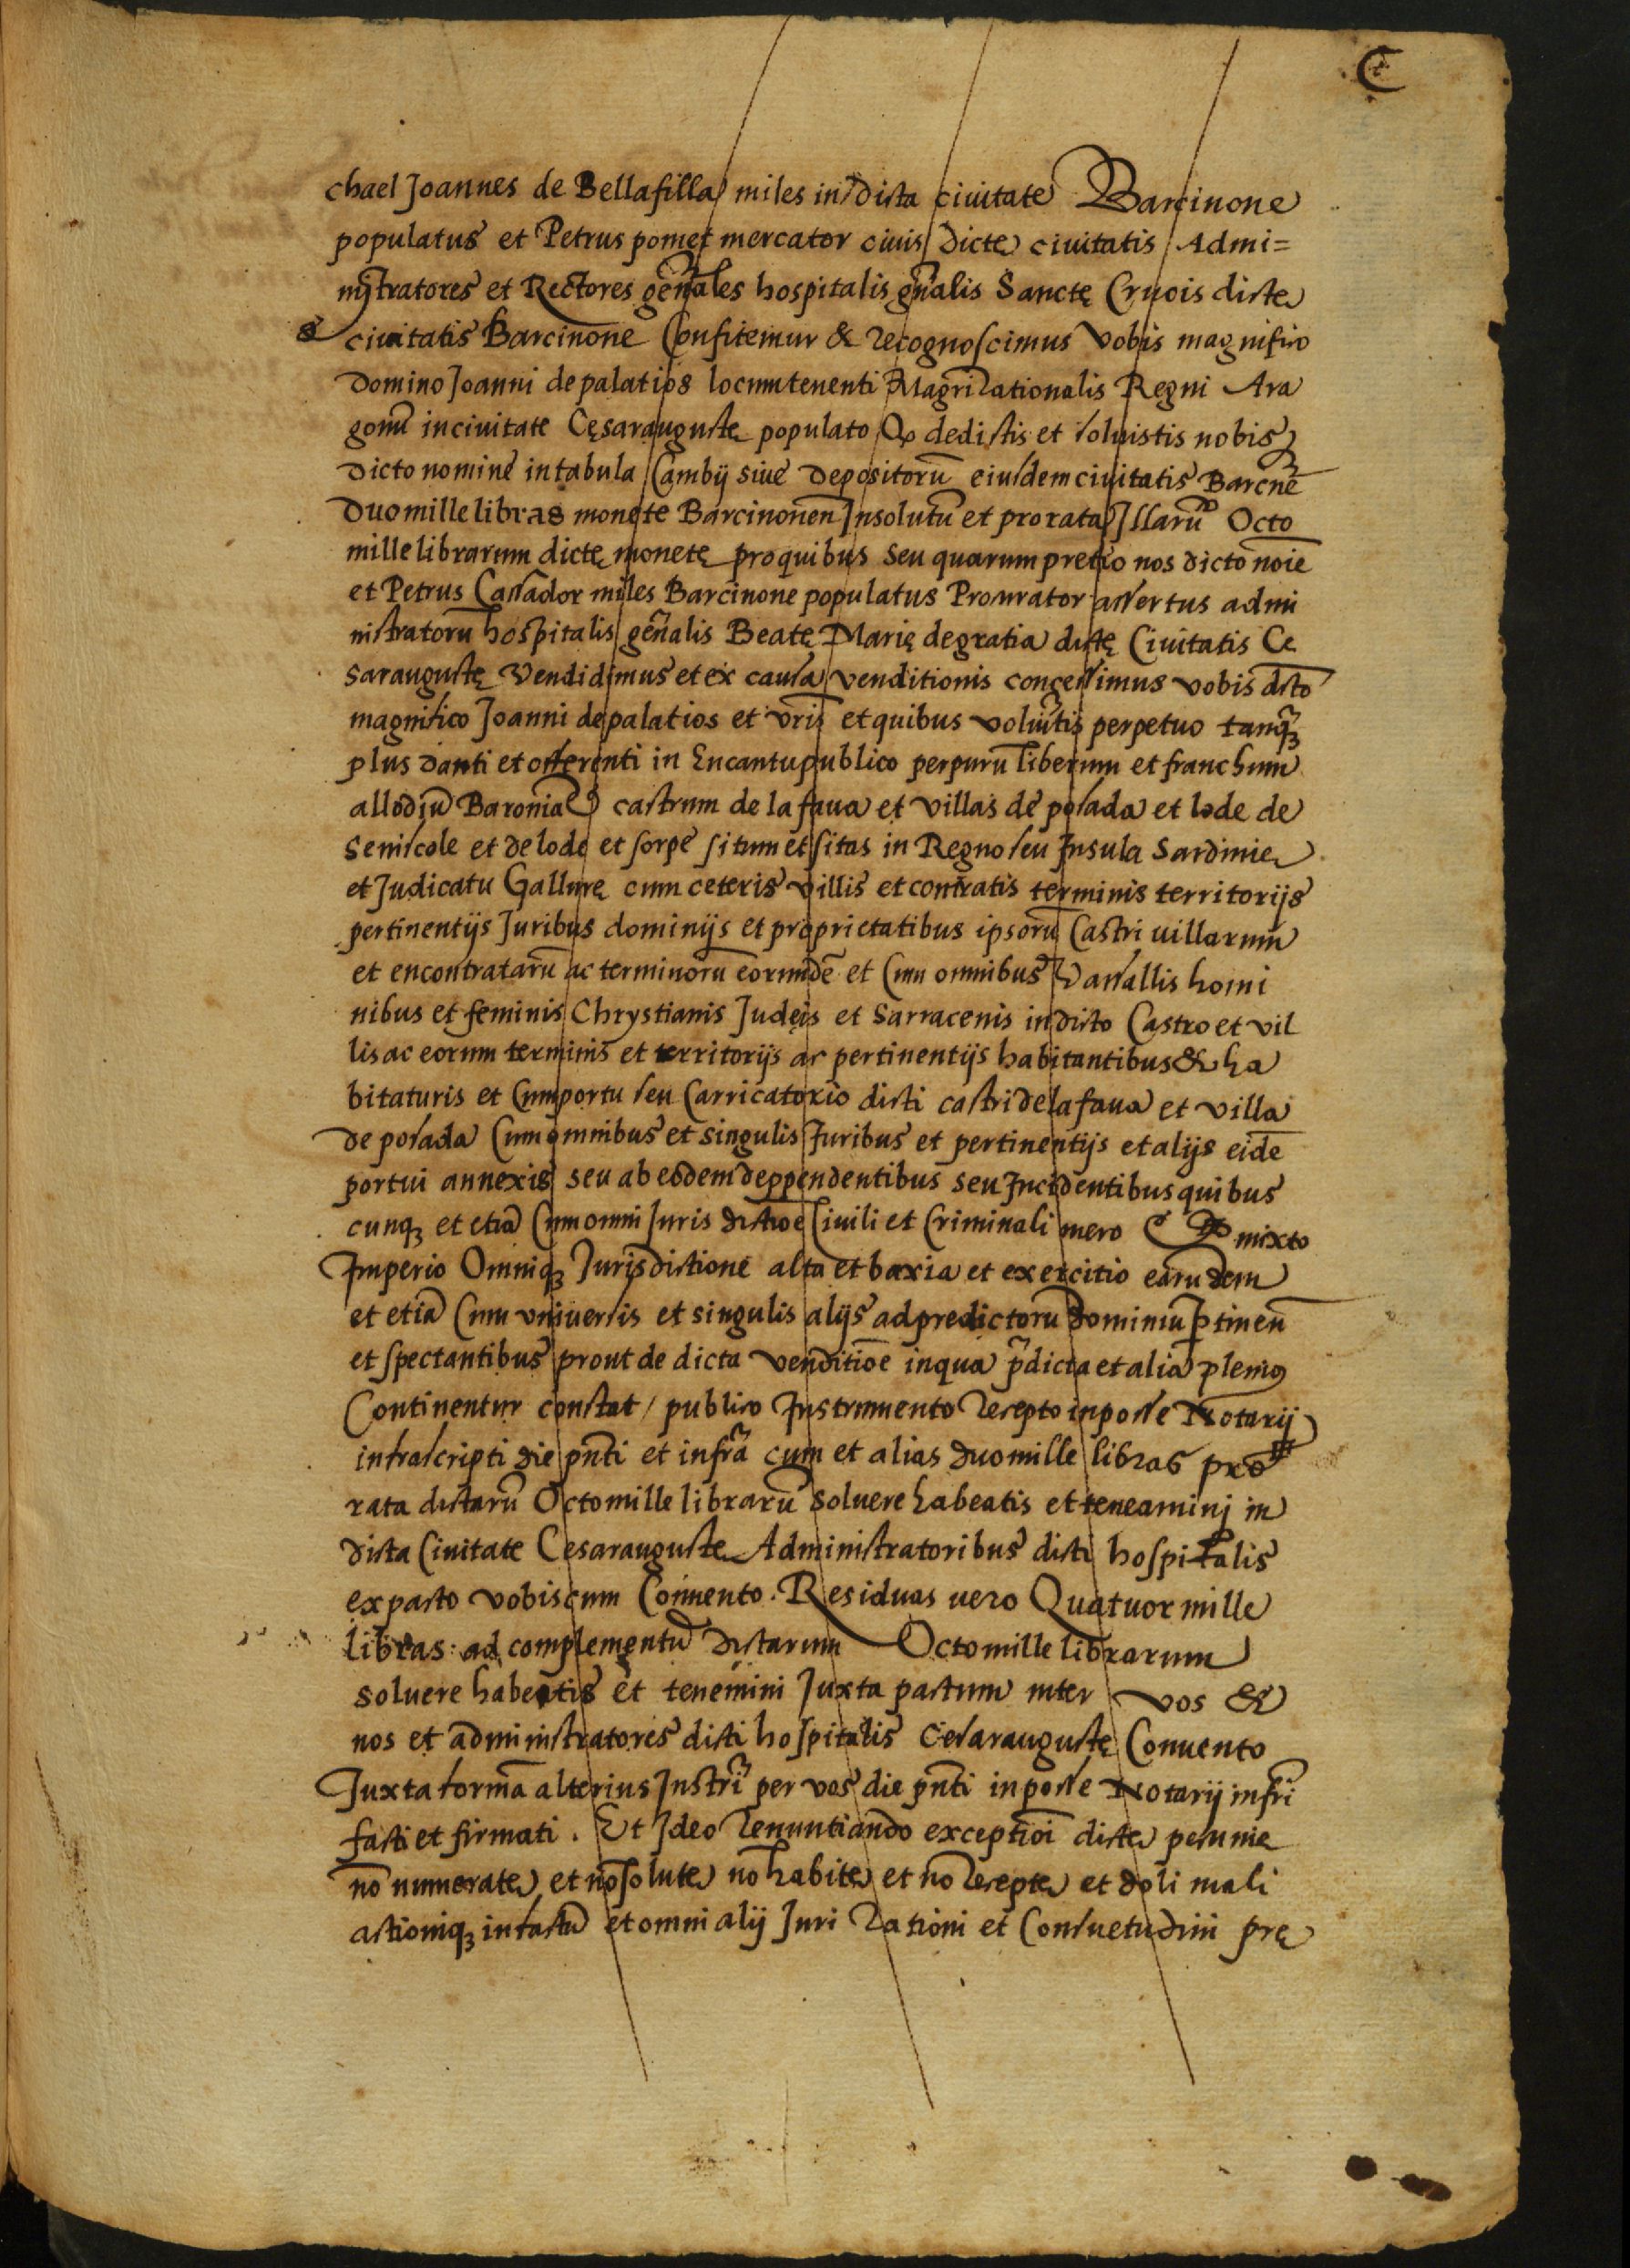 C
chael Joannes de Bellafilla miles in dicta ciuitate Barcinone
populatus et Petrus pomet mercator ciuis dicte ciuitatis Admi=
nistratores et Rectores gen̄ales hospitalis gn̄alis Sanctę Crucis dicte
ciuitatis Barcinone Confitemur & recognoscimus vobis magnifico
domino Joanni de palatios locumtenenti Magri rationalis Regni Ara
gonū in ciuitate Cęsarauguste populato Qo dedistis et soluistis nobis
dicto nomine in tabula Cambij siue depositorū eiusdem ciuitatis Barcne
Duo mille libras monete Barcinonen̄ Insolutū et pro rata Illarū Octo
mille librarum dictę monetę pro quibus seu quarum pretio nos dicto noīe
et Petrus Cassador miles Barcinone populatus Procurator assertus admi
nistratorū hospitalis gen̄alis Beatę Marię de gratia dictę Ciuitatis Ce
saraugustę Vendidimus et ex causa venditionis concessimus vobis dicto
magnifico Joanni de palatios et vr̄is et quibus voluītis perpetuo tanqꝫ
plus danti et offerenti in Encantu publico per purū liberum et franchum
allodiū Baronia castrum de la faua et villas de posada et lode de
Seniscole et de lode et sorpe situm et sitas in Regno seu Insula Sardinie
et Judicatu Gallurę cum ceteris villis et contratis terminis territorijs
pertinentijs Juribus dominijs et proprietatibus ipsorū Castri uillarum
et encontratarū ac terminorū eorundē et Cum omnibus Vassallis homi
nibus et feminis Chrystianis Judęis et Sarracenis in dicto Castro et vil
lis ac eorum terminis et territorijs ac pertinentijs habitantibus & ha
bitaturis et Cum portu seu Carricatorio dicti castri de la faua et villa
de posada Cum omnibus et singulis Juribus et pertinentijs et alijs eidē
portui annexis seu ab eodem deppendentibus seu Incidentibus quibus
cunqꝫ et etiā Cum omni Juris dictioē Ciuili et Criminali mero & mixto
Imperio Omniqꝫ Jurisdictione alta et baxia et exercitio earūdem
et etiā Cum vniuersis et singulis alijs ad predictorū dominiū ꝑtinen̄
et spectantibus prout de dicta venditiōe in qua p̄dicta et alia plenius
Continentur constat / publico Instrumento recepto in posse Notarij
infrascripti die pn̄ti et infrā cum et alias duo mille libras pro
rata dictarū Octo mille librarū soluere habeatis et teneaminj in
dicta Ciuitate Cesarauguste Administratoribus dicti hospitalis
ex pacto vobiscum Conuento . Residuas uero Quatuor mille
libras ad complementū dictarum Octo mille librarum
soluere habeatis et tenemini Juxta pactum inter vos &
nos et administratores dicti hospitalis Cesaraugustę Conuento
Juxta formā alterius Instrī per vos die pn̄ti in posse Notarij infrī
facti et firmati . Et Ideo renuntiando exceptioi dicte pecunie
nō numerate et nō solute nō habite et nō recepte et doli mali
actioniqꝫ in factū et omni alij Juri rationi et Consuetudini prę